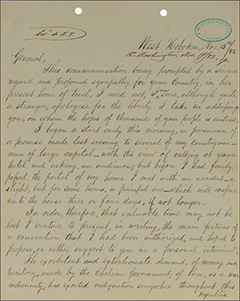 West Hoboken, Nov. 15th/82
General,
This communication being prompted by a sincere
regard and profound sympathy for your Country, in this
present hour of trial, I need not, Sir, although quite
a stranger, apologise for the liberty I take in addressing
you, on whom the hopes of thousands of your people is centred.
I began a start early this morning, in pursuance of
a promise made last evening to several of my countrymen—
men of large capital—with the view of calling at your
hotel and asking an audience; but before I had fairly
passed the portal of my home I met with an accident—a
slight, but for some hours, a painful one—which will confine
me to the house three or four days, if not longer.
In order, therefore, that valuable time may not be
lost I venture to present, in writing, the main features of
a conversation that I had been authorized, and hoped to
propose, or rather suggest to you in a personal interview.
The exorbitant and extortionate demand, of money and
territory, made by the Chilian government, of Peru, as a war
indemnity, has excited indignation everywhere throughout this
republic